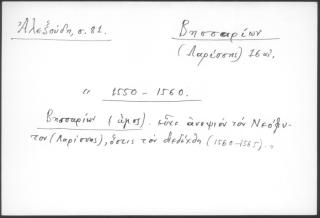 Ἀλεξούδη, σ. 81.
Βησσαρίων
(Λαρίσσης) 16 αἰ.
" 1550 – 1560.
Βησσαρίων (ἅγιος). εἶχε ἀνεψιὸν τὸν Νεόφυ-
τον (Λαρίσσης), ὅστις τὸν διεδέχθη (1560-1565).,